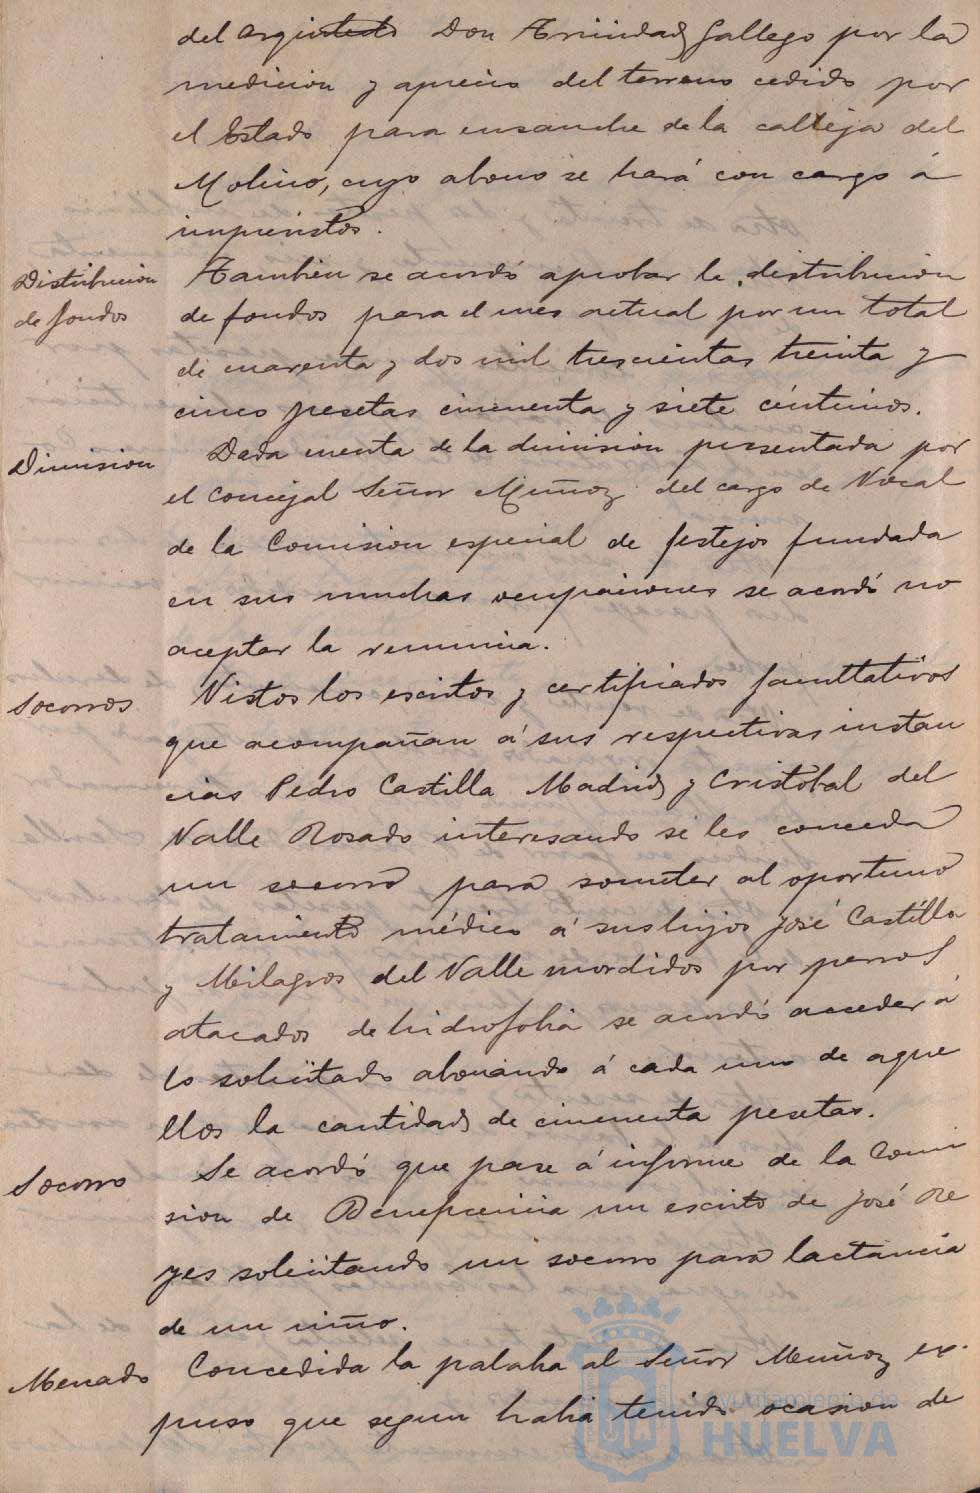 del arquitecto Don Trinidad Gallego por la
medicion y aprecio del terreno cedido por
el Estado para ensanche de la calleja del
Molino, cuyo abono se hará con cargo á
imprevistos.
Distribucion
de fondos
Tambien se acordó aprobar la distribucion
de fondos para el mes actual por un total
de cuarenta y dos mil trescientas treinta y
cinco pesetas cincuenta y siete céntimos.
Dimision
Dada cuenta de la dimision presentada por
el Concejal Señor Muñoz del cargo de Vocal
de la Comision especial de festejos fundada
en sus muchas ocupaciones se acordó no
aceptar la renuncia.
Socorros
Vistos los escritos y certificados facultativos
que acompañan á sus respectivas instan
cias Pedro Castilla Madrid y Cristobal del
Valle Rosado interesando se les conceda
un socorro para someter al oportuno
tratamiento médico á sus hijos José Castilla
y Milagros del Valle mordidos por perros
atacados de hidrofobia se acordó acceder á
lo solicitado abonando á cada uno de aque
llos la cantidad de cincuenta pesetas.
Socorro
Se acordó que pase á informe de la Comi
sion de Beneficencia un escrito de José Re
yes solicitando un socorro para lactancia
de un niño.
Mercado
Concedida la palabra al Señor Muñoz ex-
puso que segun habia tenido ocasion de
ayuntamiento de
HUELVA